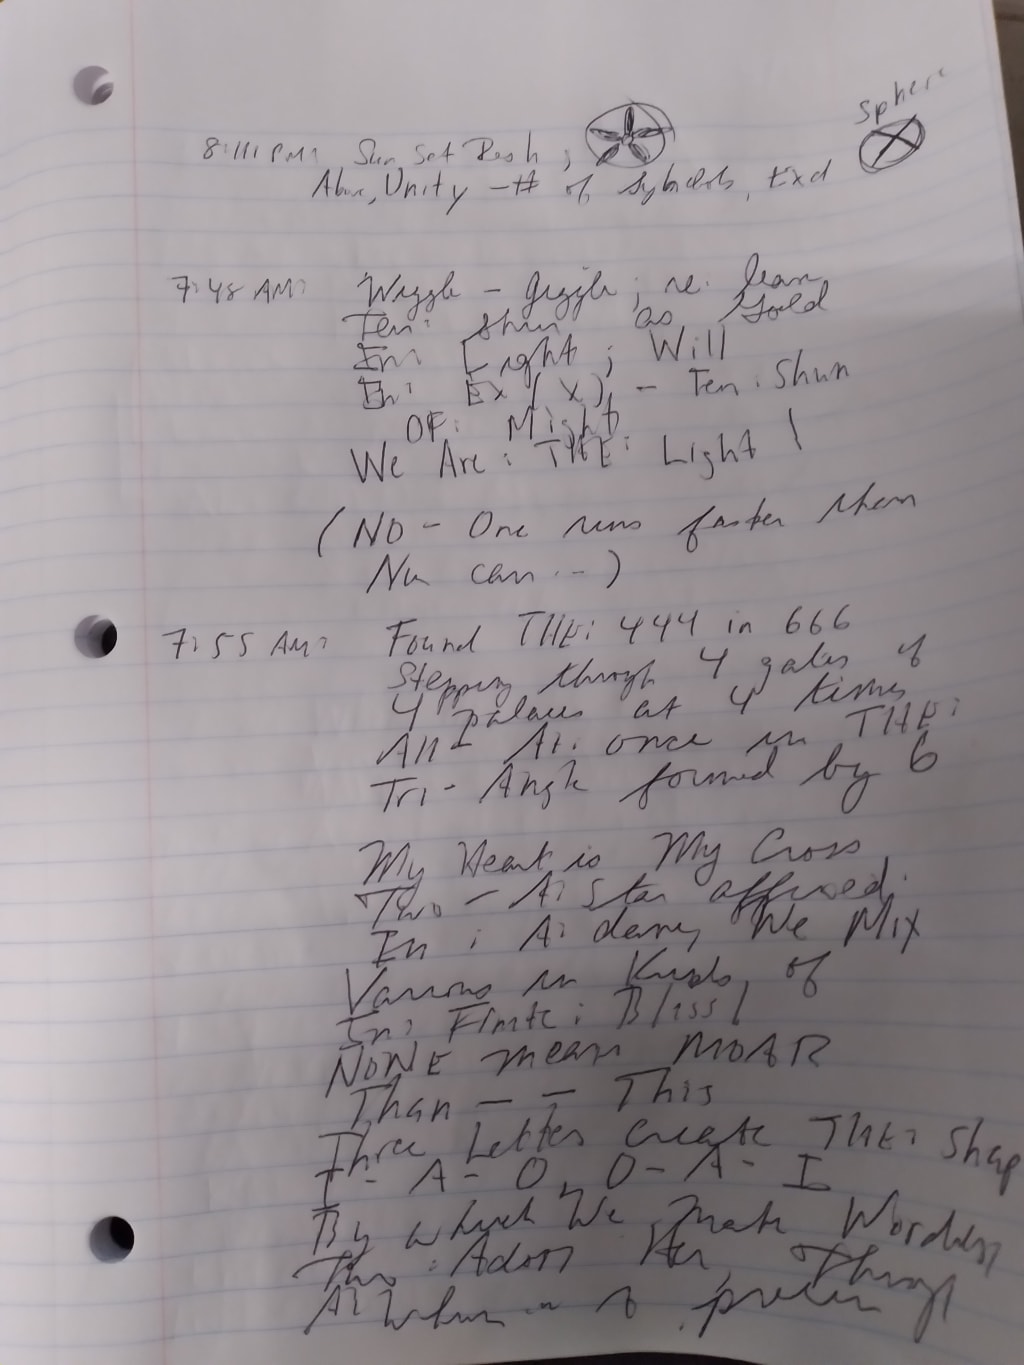 Sphere
8:11 PM: Sun Set Resh;
Above, Unity - # of symbols, Exd
7:48 AM: Wiggle - Giggle; re: lean
Ten: shun as Gold
In: Light; Will
In: Ex(X), - Ten: Shun
OF: Might
We Are: THE: Light!
(NO - One runs faster then
Nu can --)
7:55 AM: Found THE: 444 in 666
Stepping through 4 gates of
4 palaces at 4 times
All At: once in THE:
Tri-Angle formed by 6
My Heart is My Cross,
Two - A: Star affixed.
In: A: We Mix
Various in Kinds, of
In: Finite: Bliss!
NONE mean MOAR
Than -- This
Three Letters create THE: Shap
I - A - O, O - A - I
By which We make Wordless
Two: Adore Her, Through
A: When